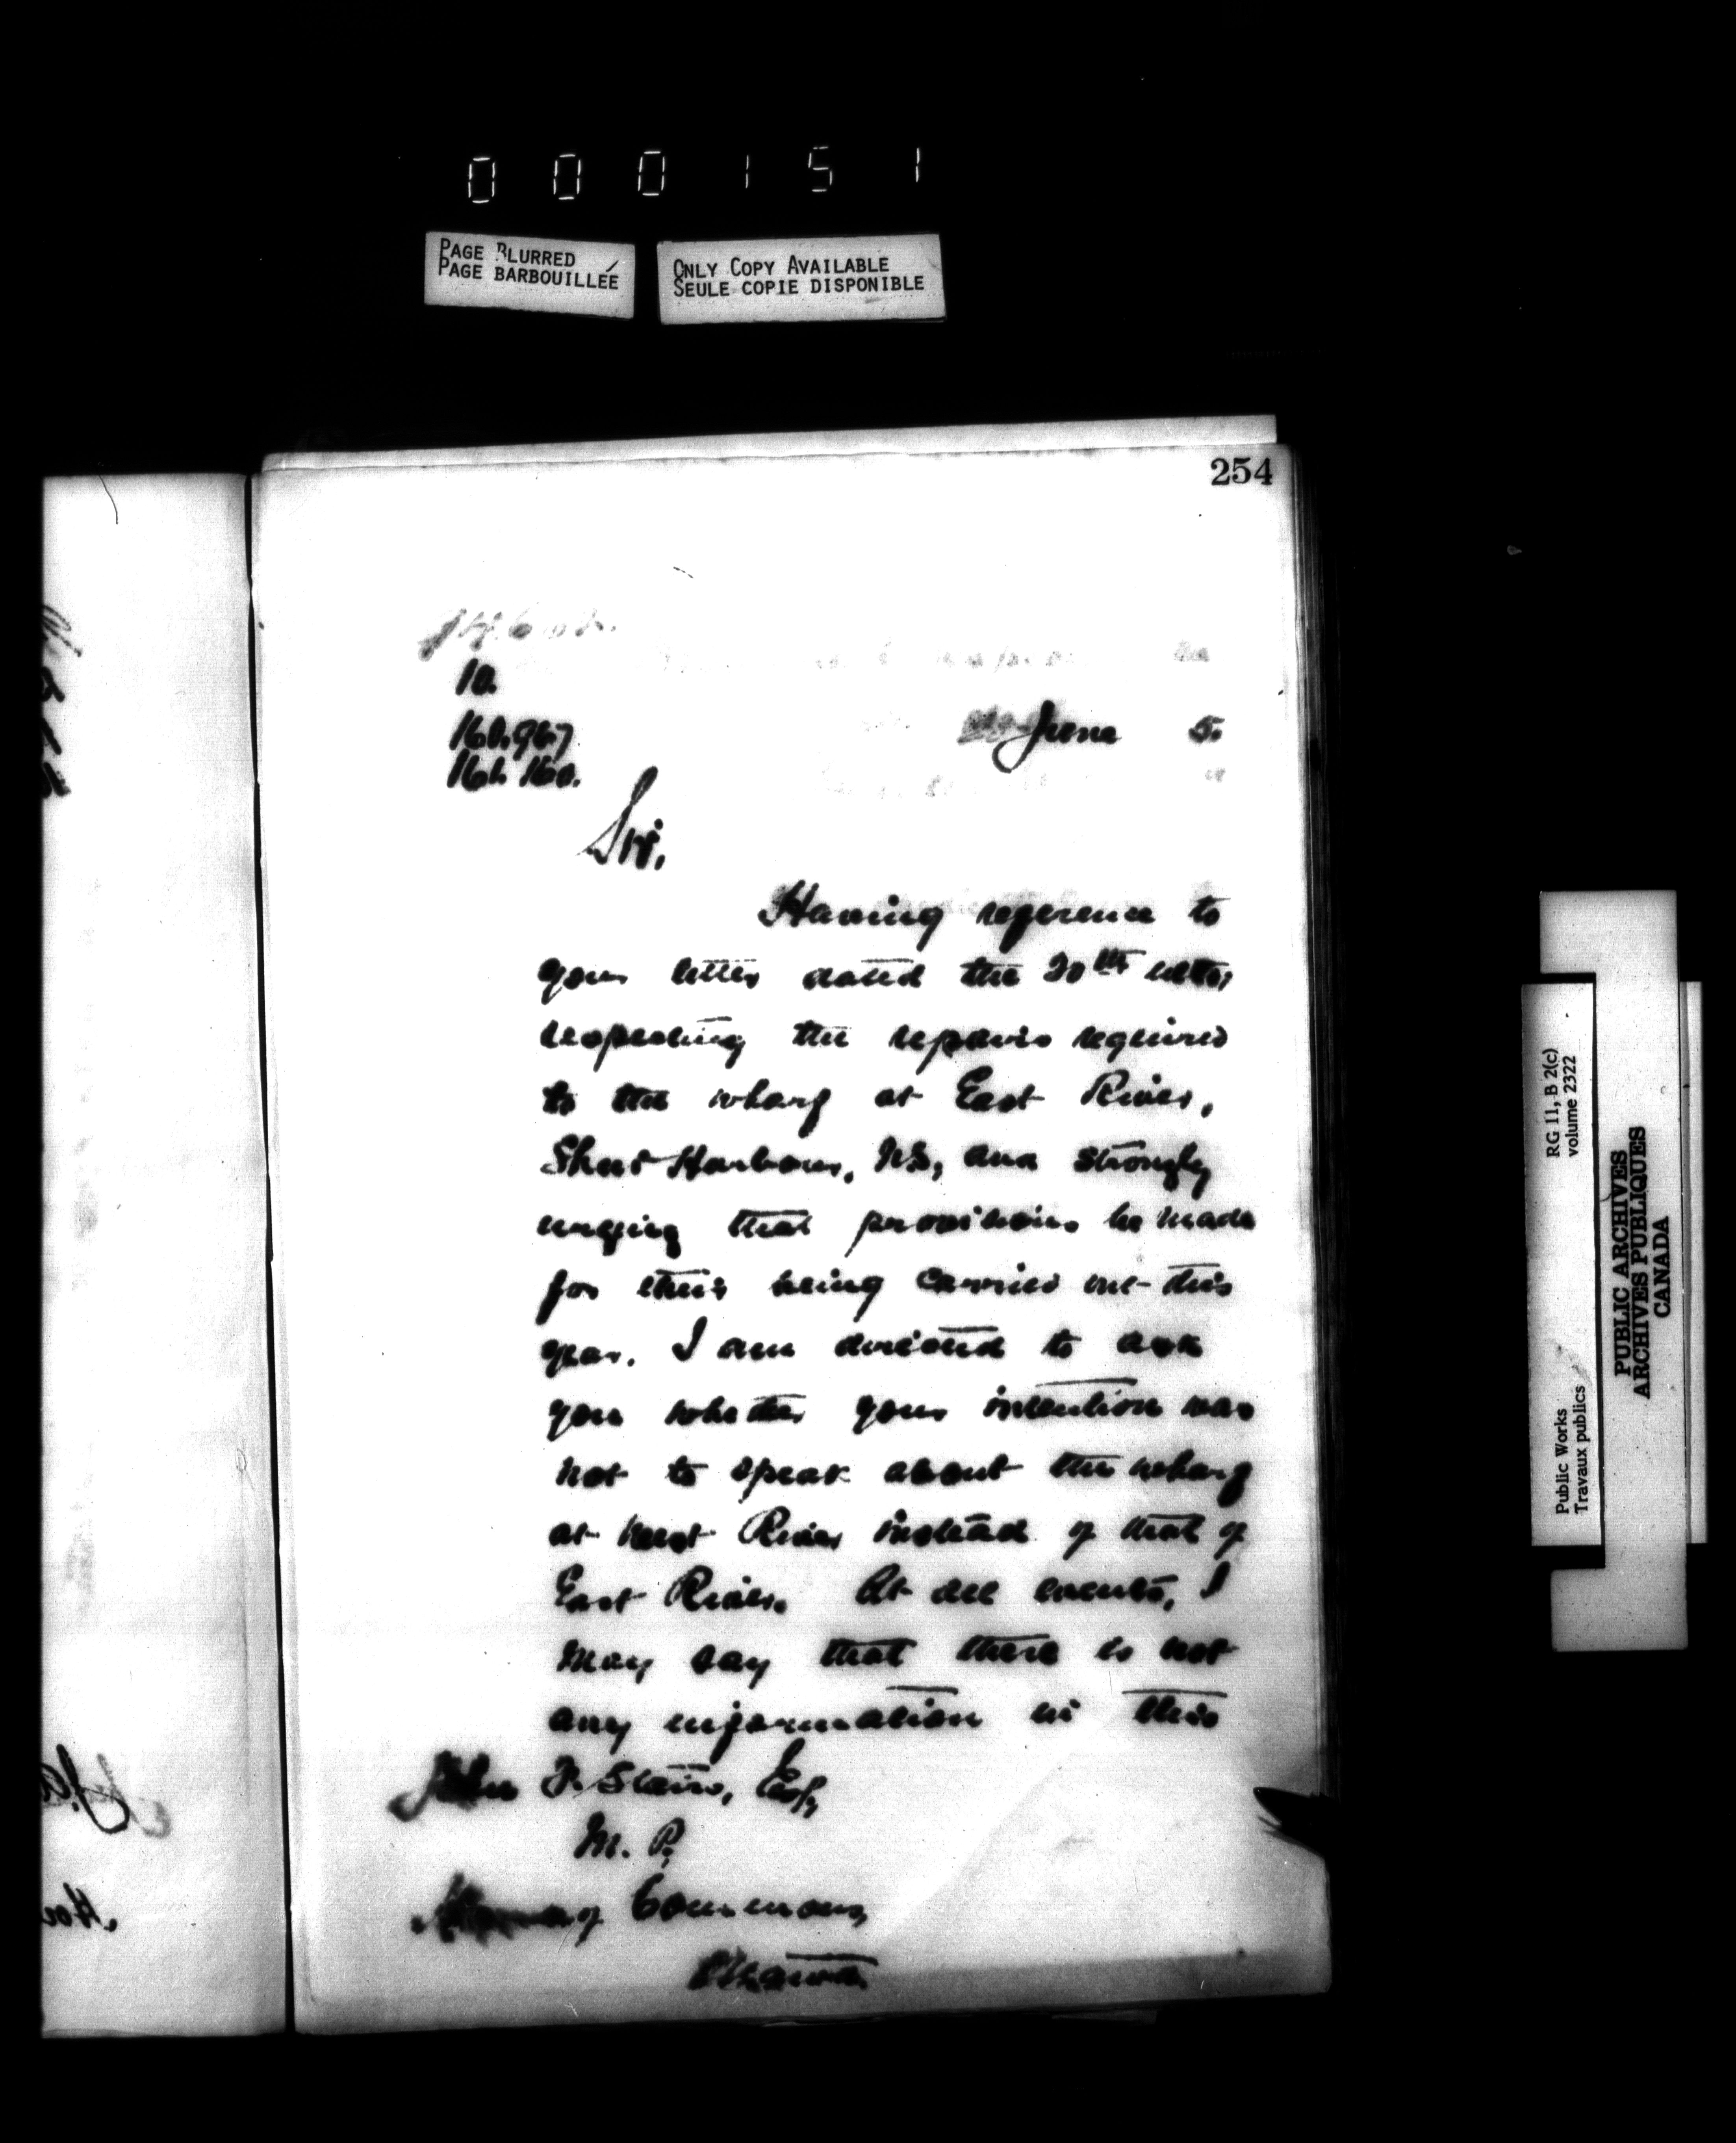 000151
PAGE BLURRED
PAGE BARBOUILLÉE
ONLY COPY AVAILABLE
SEULE COPIE DISPONIBLE
254
10.
160.967
161.160.
June 5.
Sir,
Having reference to
your letter dated the 30th ulto,
respecting the repairs required
to the wharf at East River,
Sheet Harbour, N.S., and strongly
urging that provisions be made
for their being carried out this
year. I am directed to ask
you whether your intention was
not to speak about the wharf
at West River instead of that of
East River. At all events, I
may say that there is not
any information in this
John F. Stairs, Esq,
M. P.
House of Commons,
Ottawa.
RG 11, B 2(c)
volume 2322
Public Works
Travaux publics
PUBLIC ARCHIVES
ARCHIVES PUBLIQUES
CANADA